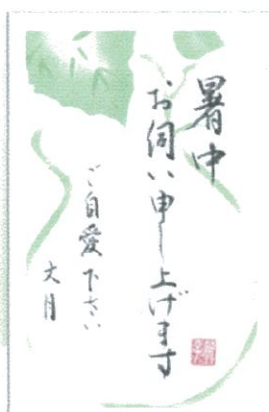 暑中
お伺い申し上げます
ご自愛下さい
文月